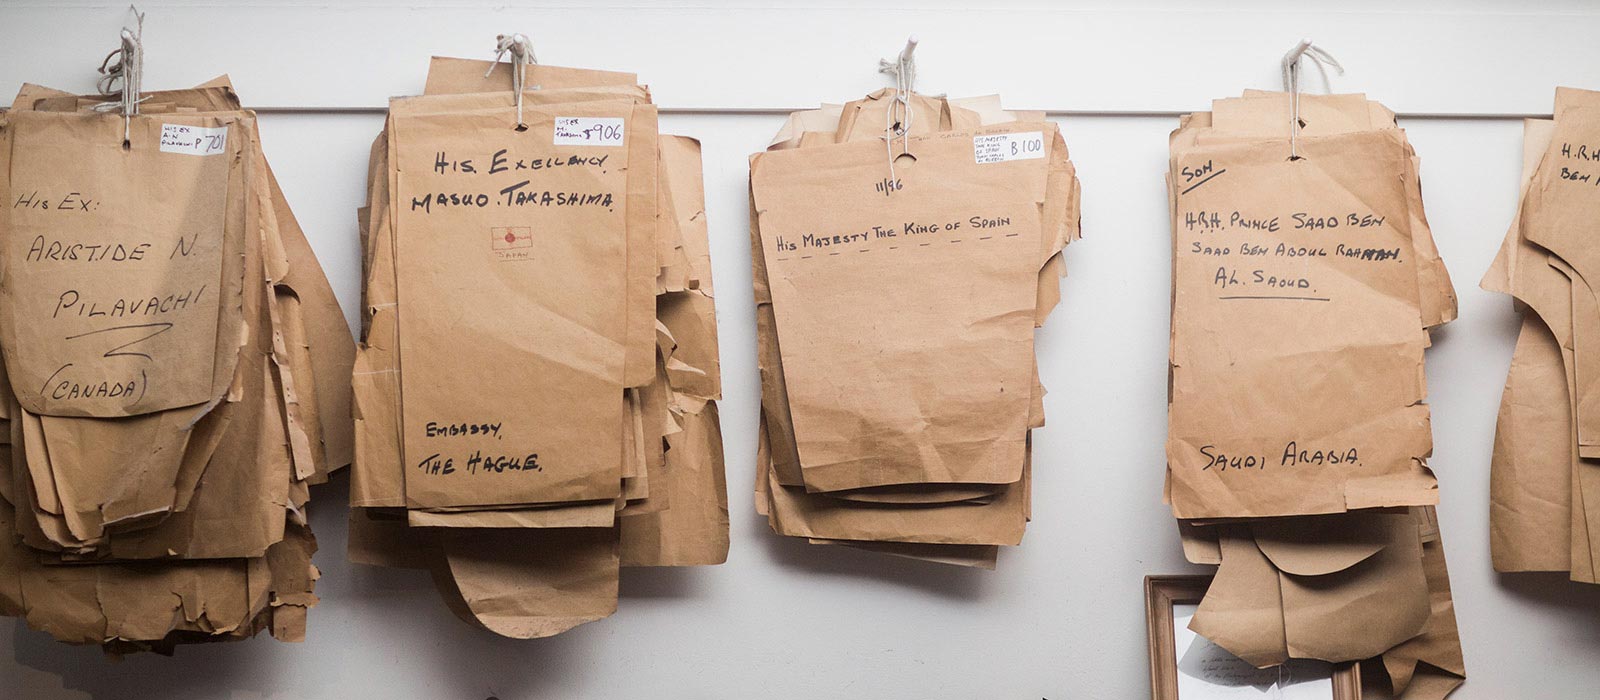 HIS EX
A.N
PILAVACHI P 701
HIS EX:
ARISTIDE N.
PILAVACHI
(CANADA)
HIS EX
M.
TAKASHIMA 906
HIS EXELLENCY.
MASUO. TAKASHIMA.
JAPAN
EMBASSY,
THE HAGUE.
JUAN CARLOS DE BORBON
HIS MAJESTY
THE KING
OF SPAIN
JUAN CARLOS
DE BORBON
B 100
11/96
HIS MAJESTY THE KING OF SPAIN
SON
H.R.H. PRINCE SAAD BEN
SAAD BEN ABDUL RAHMAN.
AL. SAOUD.
SAUDI ARABIA.
H.R.H
BEN